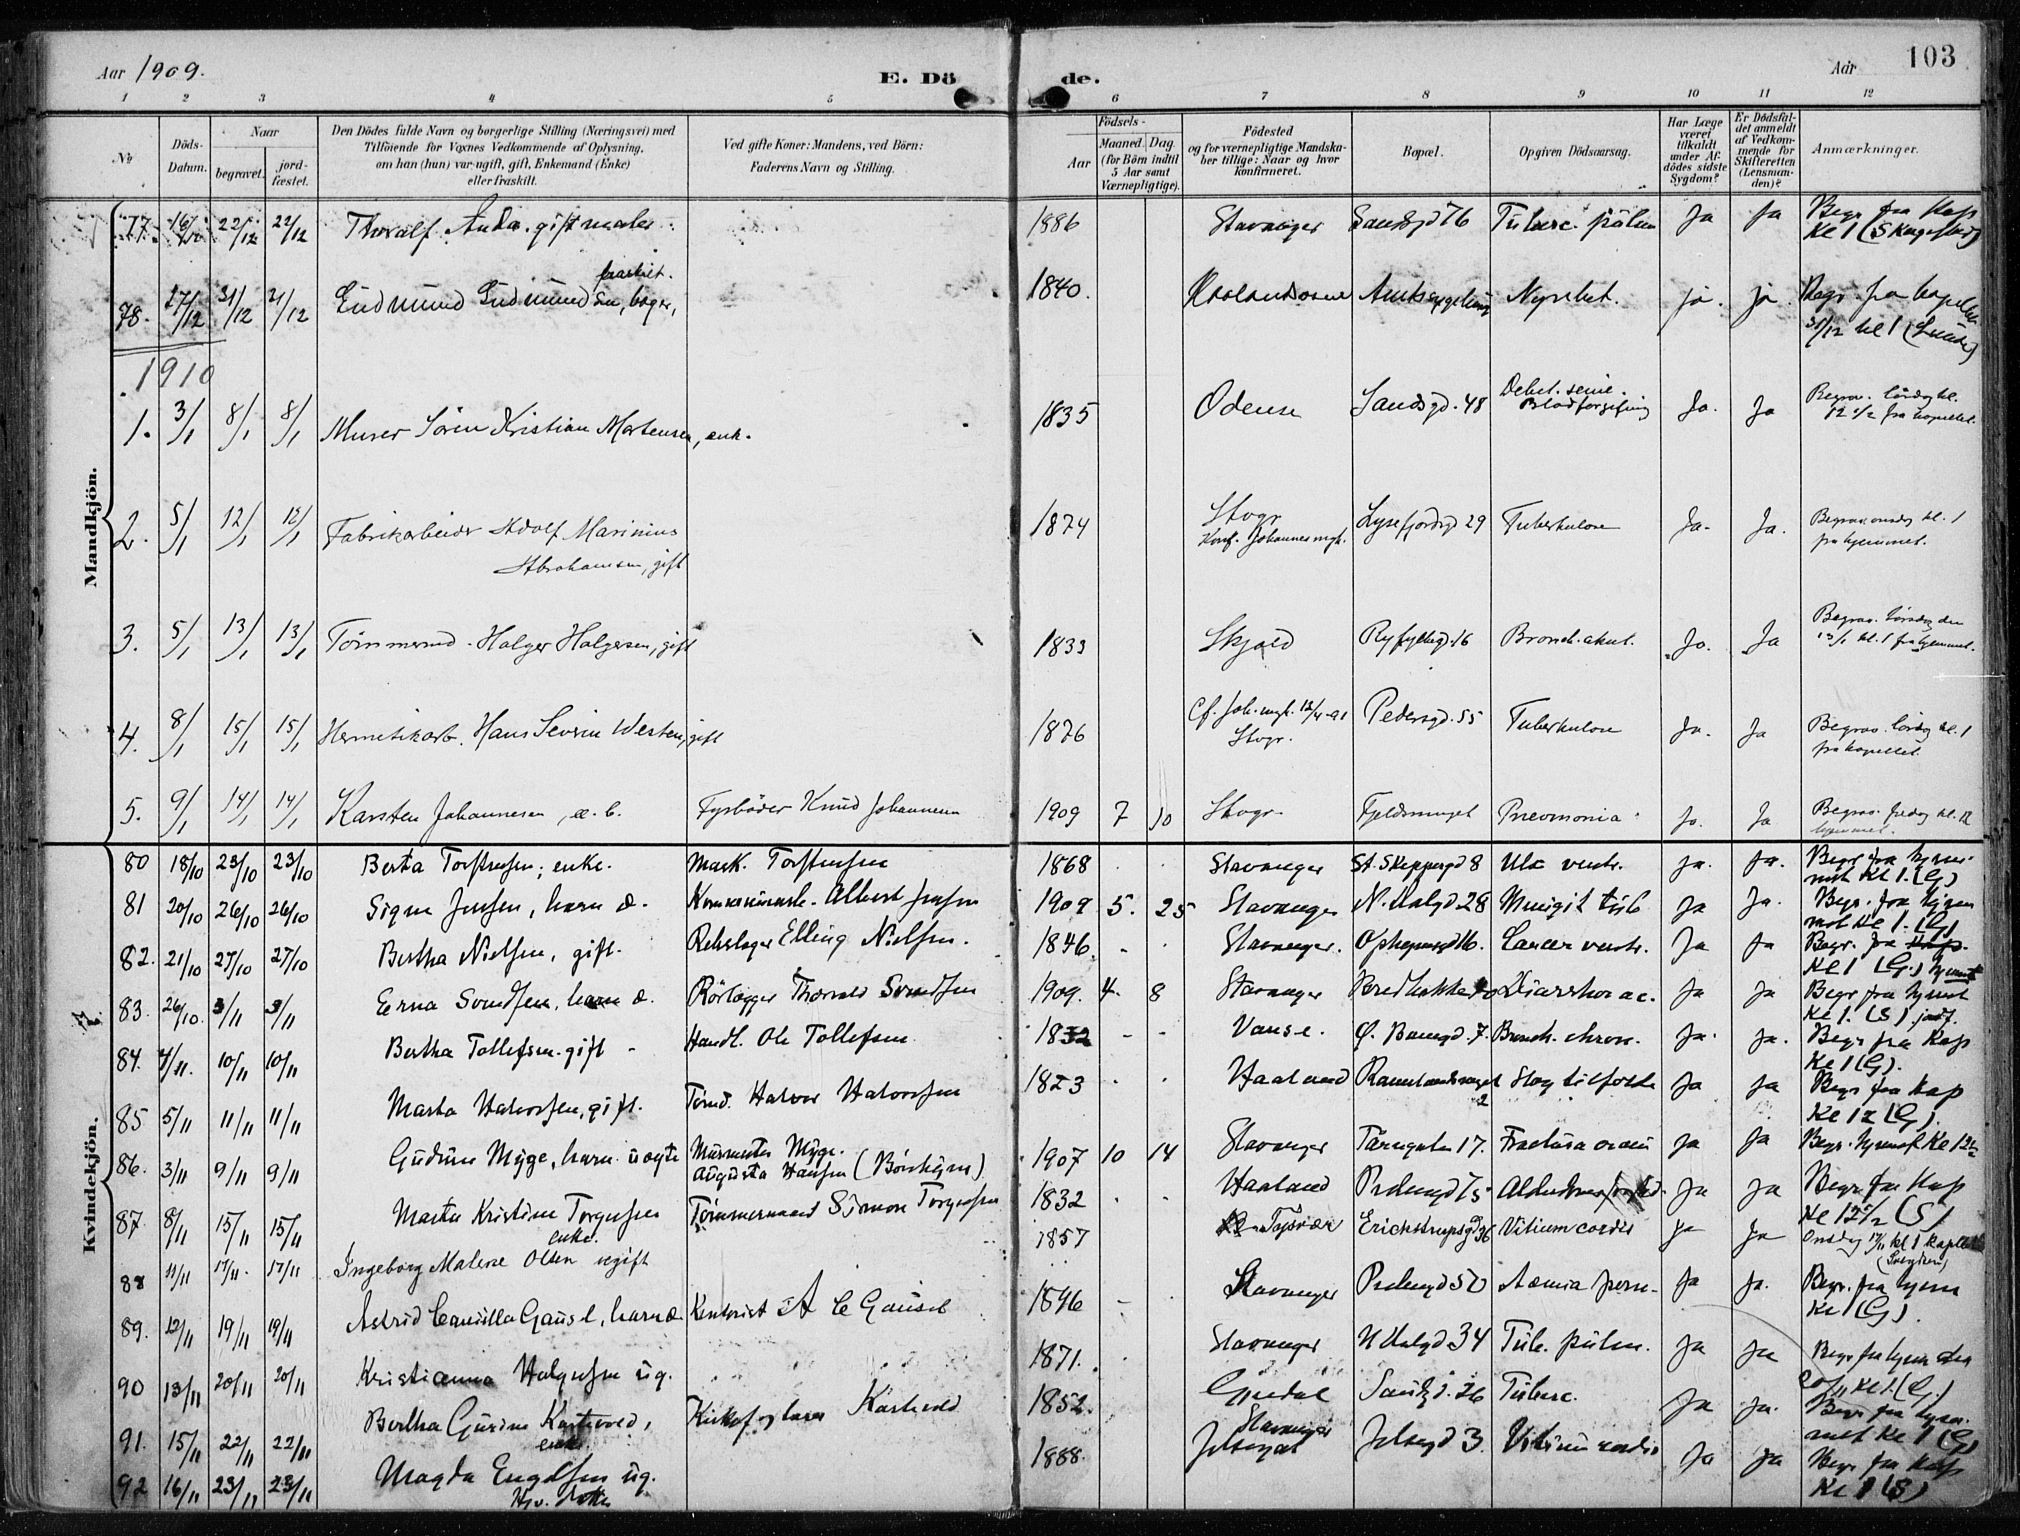 Aar 1909.
E. Dö
de.
Aar
103
1 2 3 4 5 6 7 8 9 10 11 12
No
Döds-Datum.
Naar
begravet.
jord-fæstet.
Den Dödes fulde Navn og borgerlige Stilling (Næringsvei) med
Tilföiende for Voxnes Vedkommende af Oplysning,
om han (hun) var ugift, gift, Enkemand (Enke)
eller fraskilt.
Ved gifte Koner: Mandens, ved Börn:
Faderens Navn og Stilling.
Födsels-
Aar
Maaned. Dag.
(for Börn indtil
5 Aar samt
Værnepligtige).
Födested
og for værnepligtige Mandska-
ber tillige: Naar og hvor
konfirmeret.
Bopæl.
Opgiven Dödsaarsag.
Har Læge
været
tilkaldt
under Af-
dödes sidste
Sygdom?
Er Dödsfal-
det anmeldt
af Vedkom-
mende for
Skifteretten
(Lensman-
den)?
Anmærkninger.
Mandkjön.
77. 22/12 22/12 Thoralf Anda. gift maler 1886 Stavanger Sandsgd 76 Tuberc. pulm Ja Ja Begr. fra Kap
Kl 1
fraskilt.
78. 27/12 31/12 31/12 Gudmund Gudmundsen, bager, 1840. Nyrebet. ja. ja. Begr. fra kapellet
31/12 kl 1 (Lunde)
1910
1. 3/1 8/1 8/1 Murer Sören Kristian Mortensen, enk. 1835 Odense Sandsgd. 48 Debet. senil. Blodforgifning Ja. Ja Begrav. lördag kl.
12 1/2 fra kapellet.
2. 5/1 12/1 12/1 Fabrikarbeider Adolf Marinius
Abrahamsen, gift
1874 Stvgr Konf. Johannesmgh. Lysefjordsgd 29 Tuberkulose Ja. Ja. Begrav. onsdag kl. 1
fra hjemmet.
3. 5/1 13/1 13/1 Tömmermd. Holger Holgersen, gift 1833 Skjold Ryfylkegd. 16 Bronch. akut. Ja. Ja Begrav. den
13/1 kl. 1 fra hjemmet.
4. 8/1 15/1 15/1 Hermetikarb. Hans Severin Westen, gift 1876 Cf. Joh. mgh. Stvgr. Pedersgd. 55 Tuberkulose Ja. Ja Begrav. lördag kl. 1
fra kapellet.
5. 9/1 14/1 14/1 Karsten Johannesen, æ. b. Fyrböder Knud Johannesen 1909 7 10 Stvgr. Pneumonia Ja. Ja Begrav. fredag kl. 12
hjemmet.
Kvindekjön.
80 18/10 23/10 23/10 Berta Torstensen; enke. Mask. Torstensen 1868 Stavanger St. Skippergd 8 Ulc ventr. Ja. Ja. Begr fra hjem-
met Kl 1. (G)
81 20/10 26/10 26/10 Signe Jensen, barn æ. Albert Jensen 1909 5. 25 Stavanger N. Holegd 28 Menigit tub Ja Ja. Begr. fra hjem
met Kl 1. (G)
82. 21/10 27/10 27/10 Bertha Nielsen, gift. Rebslager Elling Nielsen. 1846. - - Stavanger. Cancer ventr. Ja Ja Begr. fra Kap.
Kl 1 (G.) hjemmet
83. 26/10. 3/11 3/11 Erna Svendsen, barn æ. Rörlægger Thorvald Svendsen 1909. 4 8 Stavanger Diarrhoe ac. Ja Ja Begr fra hjemet
Kl 1. (S) jordf.
84. 4/11. 10/11 10/11 Bertha Tollefsen. gift - Handl. Ole Tollefsen 1832 - - Vanse. Ø. Banegd. 7. Bronch. chron. Ja. Ja. Begr fra Kap
Kl 1 (G).
85 5/11 11/11 11/11 Marta Halvorsen, gift. Tömd. Halvor Halvorsen 1823 Haaland Ramslandsvaget 2 Slag tilfelde Ja Ja Begr fra Kap
Kl 12 (G)
86. 3/11 9/11 9/11 Gudrun Myge, barn uægte Murmester Myge.
Augusta Hansen (Börnhjem) 1907 10 14 Stavanger Tärngaten 17. Fractura cranii Ja Ja Begr. hjemmet Kl 12 1/2
87. 8/11 15/11 15/11 Marta Kristine Torgersen
enke. Tömmermand Simon Torgersen 1832 Haaland Pedersgd 75 Ja Ja Begr. fra Kap
Kl 12 1/2 (S)
88 11/11 17/11. 17/11 Ingeborg Malene Olsen ugift 1857 Tysvær Erichstrupsgd 36 Vitium cordis Ja Ja Onsdag 17/11 kl 1 kapellet
89. 12/11 19/11 19/11 Astrid Camilla Gausel, barn æ. Kontorist A C Gausel 1896 - Stavanger Pedersgd 50 Anemia pern. Ja Ja. Begr. fra hjem
Kl 1 (G).
90 13/11 20/11 20/11 Kristianna Halgersen ug. 1871. Stavanger N Holegd 34 Tub. pulm. Ja Ja Begr fra hjem den
20/11 Kl 1. (G.)
91. 15/11 22/11 22/11 Bertha Gurine Kastvold,
enke Kastvold 1852. Gjesdal Sandsgd. 26 Tuberc. Ja Ja. Begr fra hjem-
met Kl 1 (G)
92 16/11 23/11 23/11 Magda Engelsen ug. 1888. Stavanger Jelsegd 3 Vitium cordis Ja Ja Begr fra Kap
Kl 1 (S)